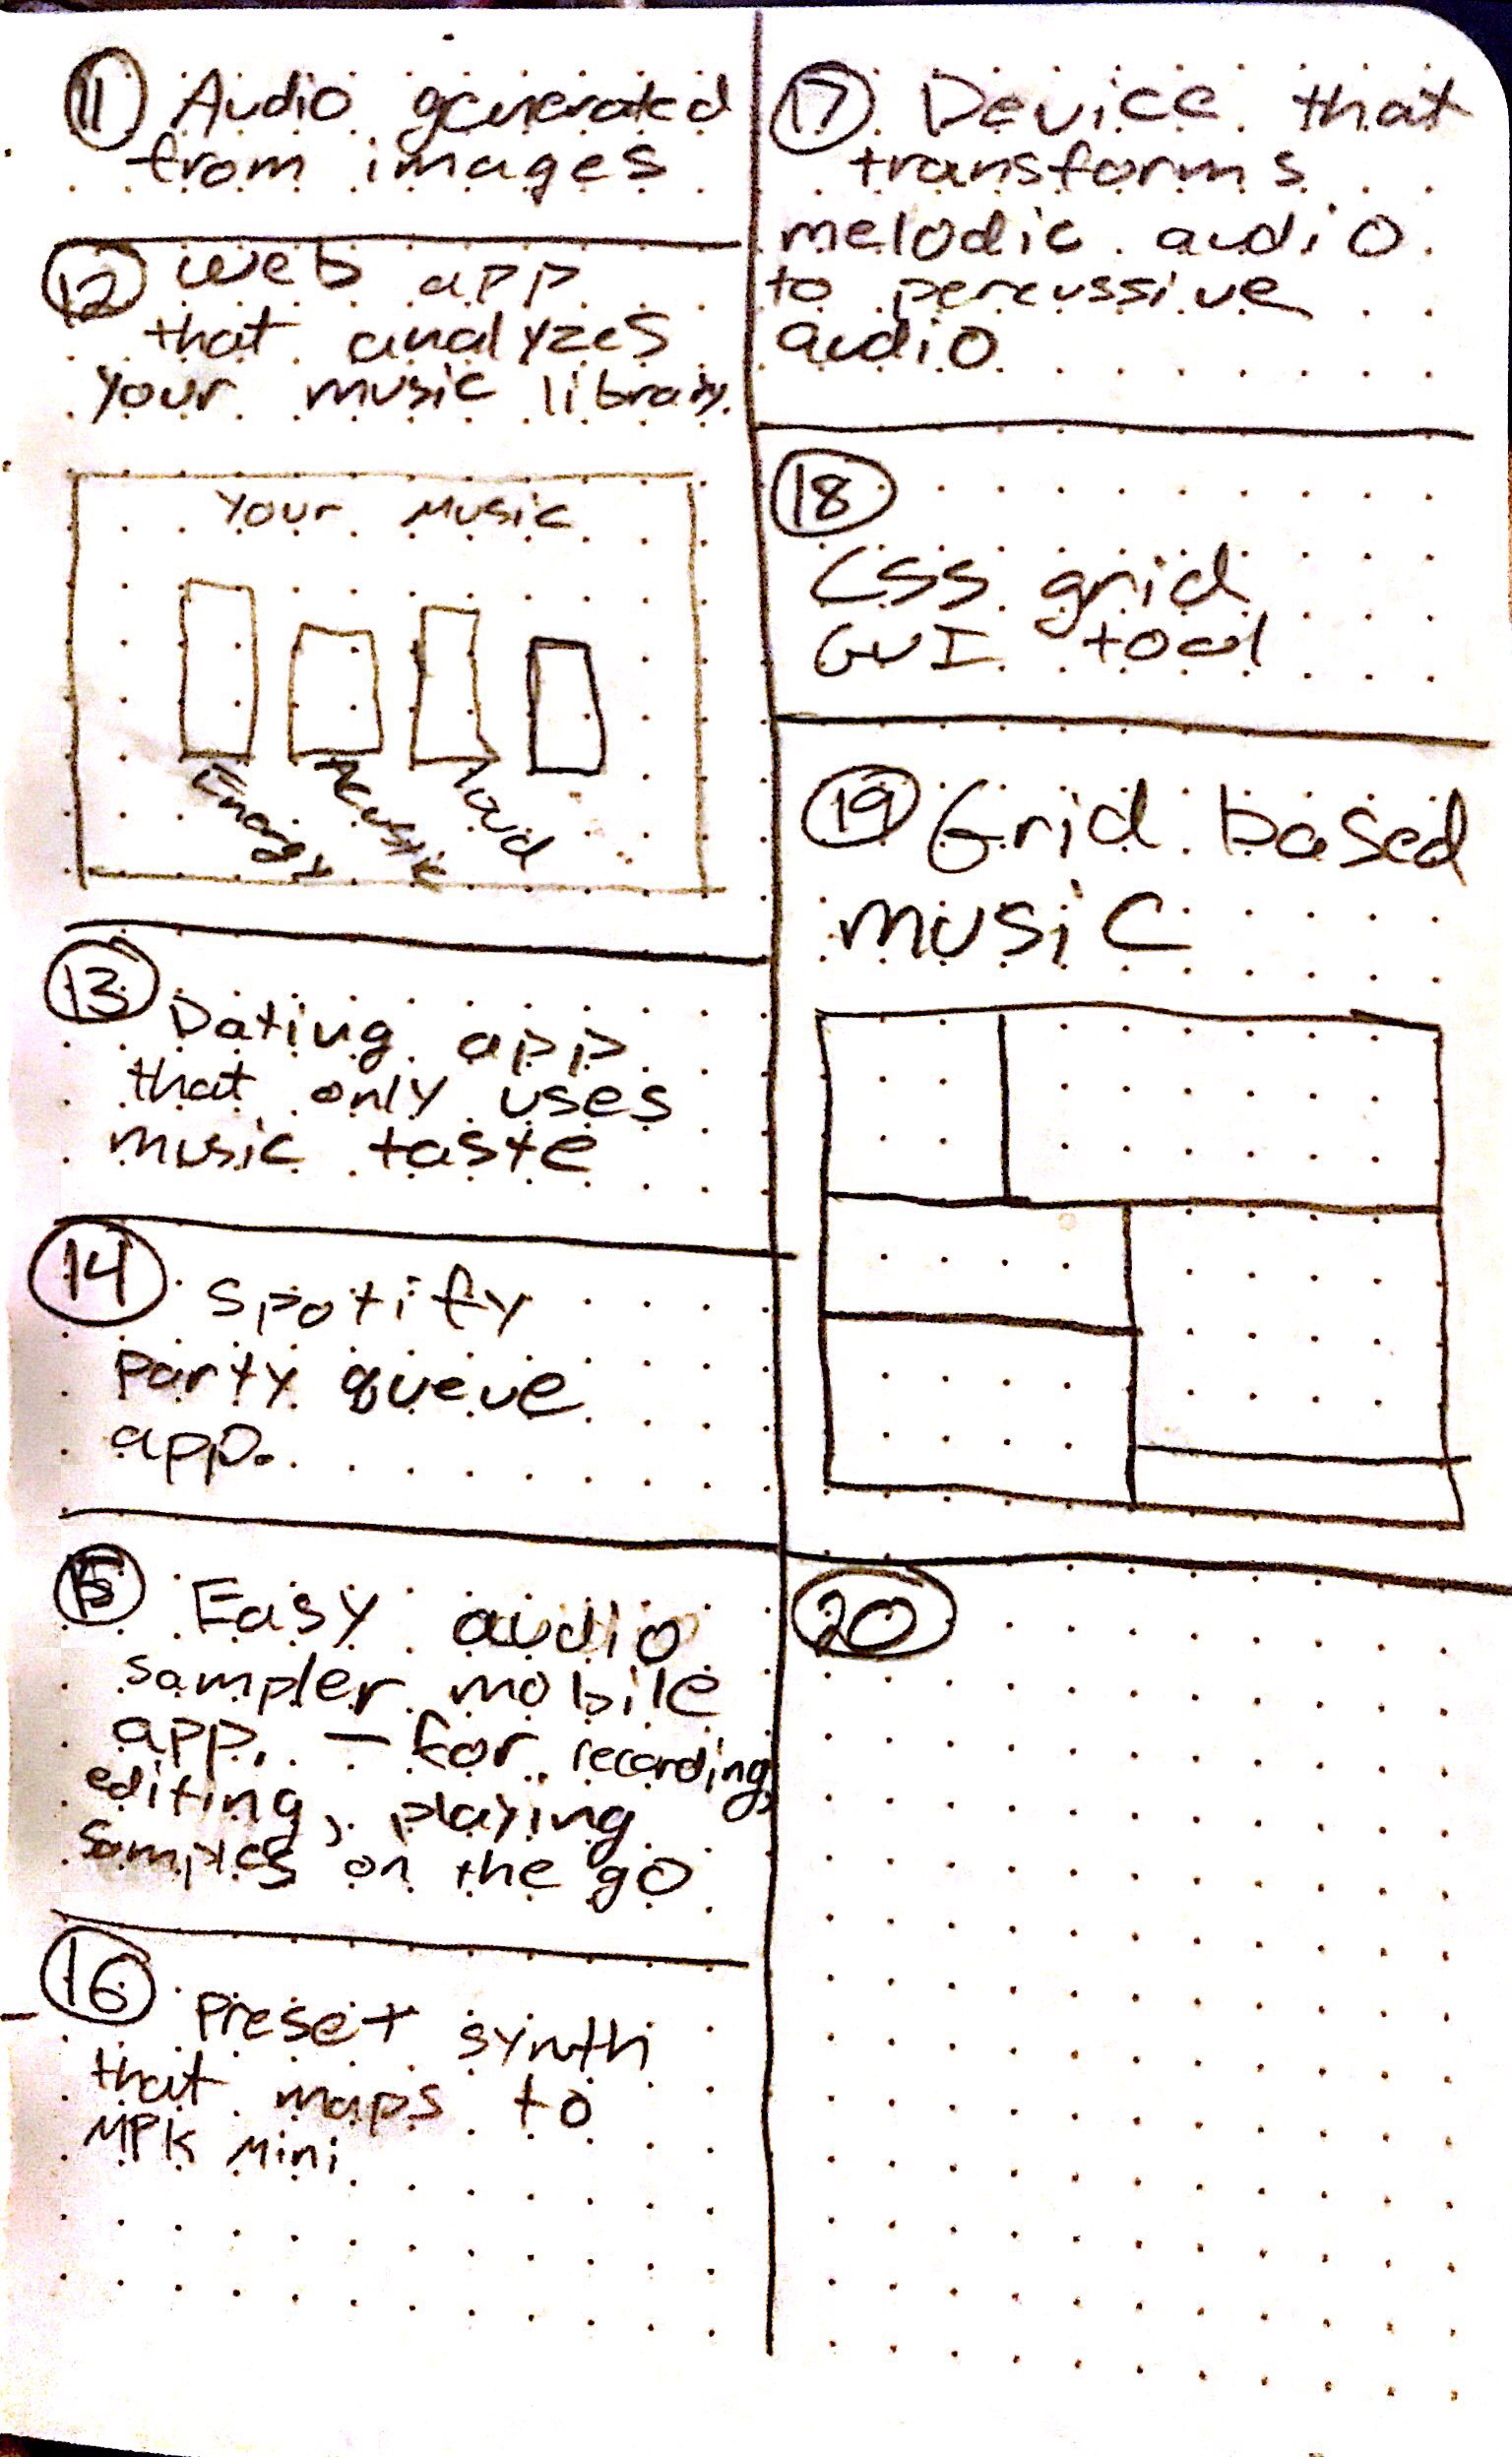 11 Audio generated
from images
12 Web app
that analyzes
your music library.
Your Music
Energy
Acoustic
Loud
13 Dating app
that only uses
music taste
14 Spotify
party queue
app.
15 Easy audio
sampler mobile
app. - for recording,
editing, playing
samples on the go
16 Preset synth
that maps to
MPK Mini
17 Device that
transforms
melodic audio
to percussive
audio
18
CSS grid
GUI tool
19 Grid based
music
20